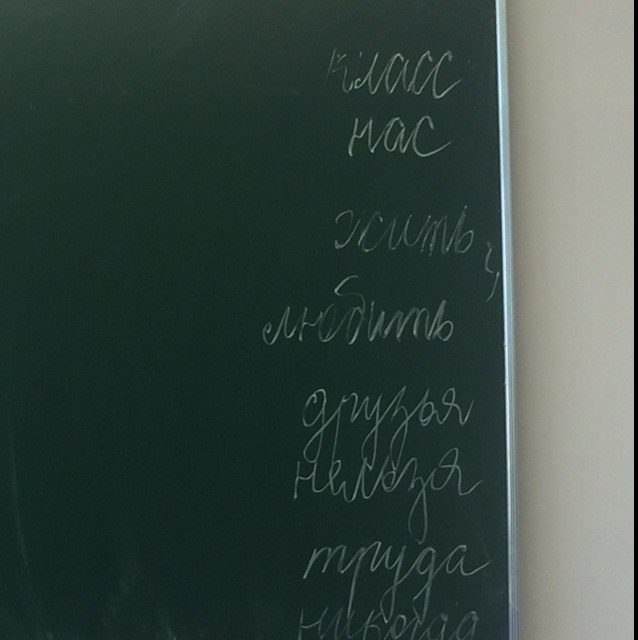 класс
нас
жить,
любить
друзья
нельзя
труда
никогда